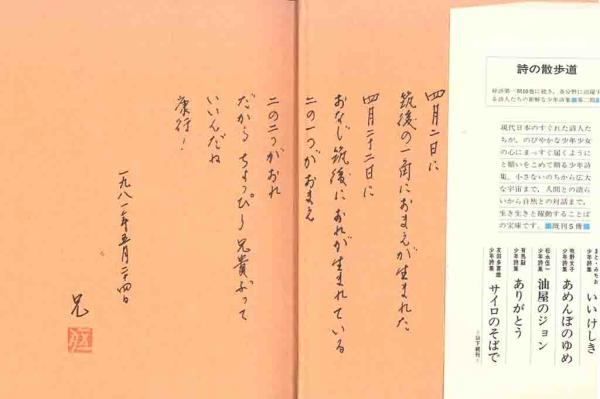 詩の散歩道
現代日本のすぐれた詩人た
ちが、のびやかな少年少女
の心にまっすぐ届くように
と願いをこめて贈る少年詩
集。小さないのちから広大
な宇宙まで、人間との語ら
いから自然との対話まで、
生き生きと躍動することば
の宝庫です。■既刊5冊■
まど・みちお
少年詩集
いいけしき
牧野文子
少年詩集
あめんぼのゆめ
松永伍一
少年詩集
油屋のジョン
有馬敲
少年詩集
ありがとう
友田多喜雄
少年詩集
サイロのそばで
以下続刊
四月二日に
筑後の一角におまえが生まれた
四月二十二日に
おなじ筑後におれが生まれている
二の一つがおまえ
二の二つがおれ
だからちょっぴり兄貴ぶって
いいんだね
康行!
一九八一年五月二四日
兄